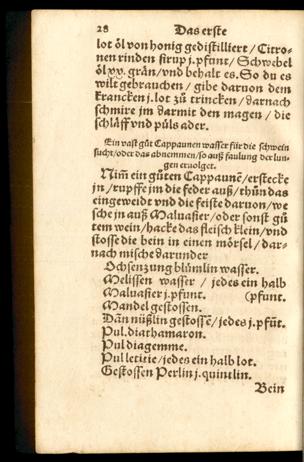 28 Das erste
lot öl von honig gedistilliert / Citro-
nen rinden sirup j. pfunt / Schwebel
öl xx. grän / vnd behalt es. So du es
wilt gebrauchen / gibe daruon dem
krancken j. lot zů trincken / darnach
schmire jm darmit den magen / die
schläff vnd půls ader.
Ein vast gůt Cappaunen wasser für die schwein
sucht / oder das abnemmen / so auß faulung der lun-
gen eruolget.
Nim̃ ein gůten Cappaunẽ / erstecke
jn / rupffe jm die feder auß / thůn das
eingeweidt vnd die feiste daruon / we
sche jn auß Maluasier / oder sonst gů
tem wein / hacke das fleisch klein / vnd
stosse die bein in einen mörsel / dar-
nach mische darunder
Ochsenzung blümlin wasser.
Melissen wasser / jedes ein halb
Maluasier j. pfunt. (pfunt.
Mandel gestossen.
Dan̄ nüßlin gestossẽ / jedes j. pfũt.
Pul. diathamaron.
Pul diagemme.
Pul letitie / jedes ein halb lot.
Gestossen Perlin j. quintlin.
Bein